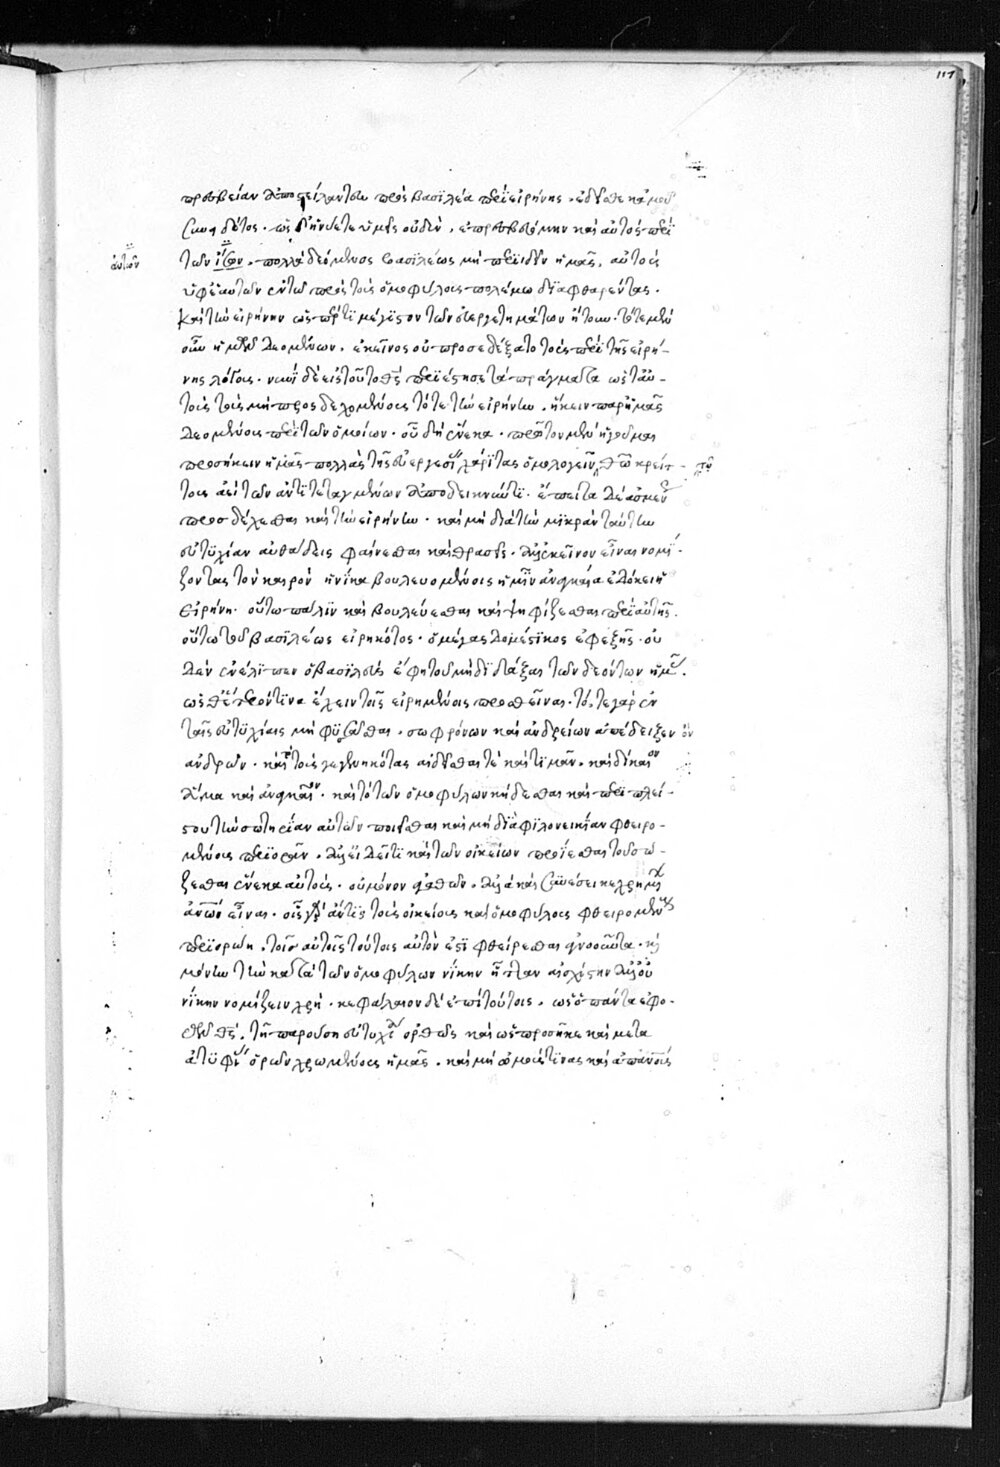 117
πρεσβείαν ἀποστείλαντων πρὸς βασιλέα περὶ εἰρήνης
ὡς δὲ ἠνύετε ὑμεῖς οὐδὲν, ἐπρεσβευόμην καὶ αὐτὸς περὶ
αὐτῶν
τῶν ἴσων, πολλὰ δεόμενος βασιλέως μὴ περιιδεῖν ἡμᾶς, αὐτοὺς
ὑφ' ἑαυτῶν ἐν τῷ πρὸς τοὺς ὁμοφύλους πολέμω διαφθαρέντας.
καὶ τὴν εἰρήνην ὡς πέρ τι μέγιστον τῶν εὐεργετημάτων ἤτουν. τότε μὲν
οὖν ἡμῶν δεομένων, ἐκεῖνος οὐ προσεδέξατο τοὺς περὶ τῆς εἰρή-
νης λόγους. νυνὶ δὲ εἰς τοῦτο θεὸς περιέστησε τὰ πράγματα ὡς τοὺς αὐ-
τοὺς τοὺς μὴ προσδεχομένους τότε τὴν εἰρήνην, ἥκειν παρ' ἡμᾶς
δεομένους περὶ τῶν ὁμοίων. οὗ δὴ ἕνεκα, πρῶτον μὲν ἡγοῦμαι
προσήκειν ἡμᾶς πολλὰς τῆς εὐεργεσίας χάριτας ὁμολογεῖν θεῷ κρείτ-
τους ἀεὶ τῶν ἀντιτεταγμένων ἀποδεικνύντι. ἔπειτα δὲ ἀσμένως
προσδέχεσθαι καὶ τὴν εἰρήνην. καὶ μὴ διὰ τὴν μικρὰν ταύτην
εὐτυχίαν αὐθάδεις φαίνεσθαι καὶ θρασεῖς. ἀλλ' ἐκεῖνον εἶναι νομί-
ζοντας τὸν καιρὸν ἡνίκα βουλευομένοις ἡμῖν ἀναγκαία ἐδόκει ἡ
εἰρήνη. οὕτω πάλιν καὶ βουλεύεσθαι καὶ ψηφίζεσθαι περὶ αὐτῆς.
οὕτω τοῦ βασιλέως εἰρηκότος. ὁ μέγας δομέστικος ἐφεξῆς. οὐ
δὲν ἐνέλιπεν ὁ βασιλεὺς ἔφη τοῦ μὴ διδάξαι τῶν δεόντων ἡμᾶς.
ὡς θ' ἕτερόν τινα ἔχειν τοῖς εἰρημένοις προσθεῖναι. τό, τε γὰρ ἐν
ταῖς εὐτυχίαις μὴ φυσᾶσθαι, σωφρόνων καὶ ἀνδρείων ἀπέδειξεν ὂν
ἀνδρῶν. καὶ τὸ τοὺς γεγενηκότας αἰδεῖσθαί τε καὶ τιμᾶν, καὶ δίκαιον
ἅμα καὶ ἀναγκαῖον. καὶ τὸ τῶν ὁμοφύλων κήδεσθαι καὶ περὶ πλεί-
στου τὴν σωτηρίαν αὐτῶν ποιεῖσθαι καὶ μὴ διὰ φιλονεικίαν φθειρο-
μένους περιορᾶν, ἀλλ' εἰ δεῖ τι καὶ τῶν οἰκείων προΐεσθαι τοῦ σώ-
ζεσθαι ἕνεκα αὐτοὺς. οὐ μόνον ἀγαθῶν, ἀλλὰ καὶ
εἶναι. τοὺς οἰκείους καὶ ὁμοφύλους φθειρομένους
περιορώη, τοῖς αὐτοῖς τούτοις αὐτὸν ἔστι φθείρεσθαι
μόνην τὴν κατὰ τῶν ὁμοφύλων νίκην ἧτταν αἰσχίστην ἀλλ' οὐ
νίκην νομίζειν χρή. κεφάλαιον δὲ ἐπὶ τούτοις, ὡς ὁ πάντα ἐφο-
ρῶν θεὸς, τῇ παρούσῃ εὐτυχίᾳ ὀρθῶς καὶ ὡς προσῆκε καὶ μετὰ
ἀτυφίας ὁρῶν χρωμένους ἡμᾶς, καὶ μὴ ὠμοὺς τινας καὶ ἀπανθρώπους